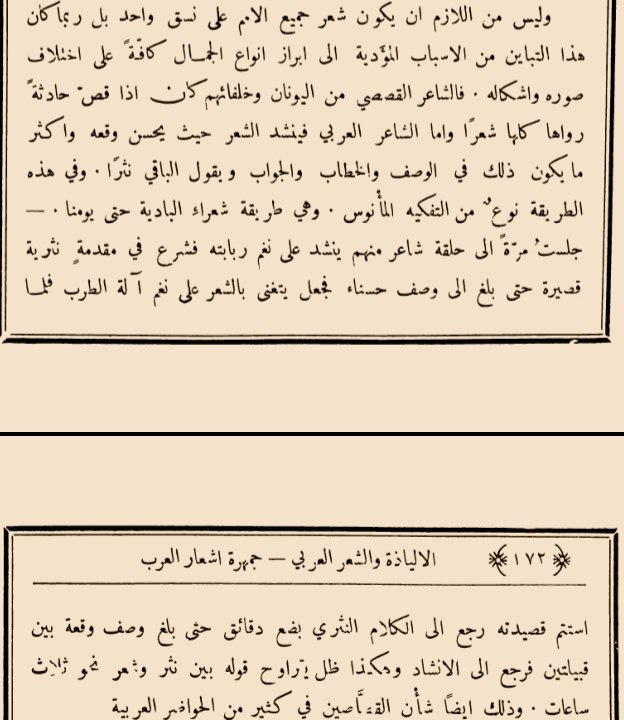 وليس من اللازم ان يكون شعر جميع الامم على نسق واحد بل ربما كان
هذا التباين من الاسباب المؤدية الى ابراز انواع الجمال كافةً على اختلاف
صوره واشكاله . فالشاعر القصصي من اليونان وخلفائهم كان اذا قصّ حادثةً
رواها كلها شعرًا واما الشاعر العربي فينشد الشعر حيث يحسن وقعه واكثر
ما يكون ذلك في الوصف والخطاب والجواب ويقول الباقي نثرًا . وفي هذه
الطريقة نوعٌ من التفكيه المأنوس . وهي طريقة شعراء البادية حتى يومنا . —
جلستُ مرّةً الى حلقة شاعر منهم ينشد على نغم ربابته فشرع في مقدمةٍ نثرية
قصيرة حتى بلغ الى وصف حسناء فجعل يتغنى بالشعر على نغم آلة الطرب فلما
﴿ ١٧٢ ﴾ الالياذة والشعر العربي — جمهرة اشعار العرب
استتم قصيدته رجع الى الكلام النثري بضع دقائق حتى بلغ وصف وقعة بين
قبيلتين فرجع الى الانشاد وهكذا ظل يتراوح قوله بين نثر وشعر نحو ثلاث
ساعات . وذلك ايضًا شأن القصَّاصين في كثير من الحواضر العربية